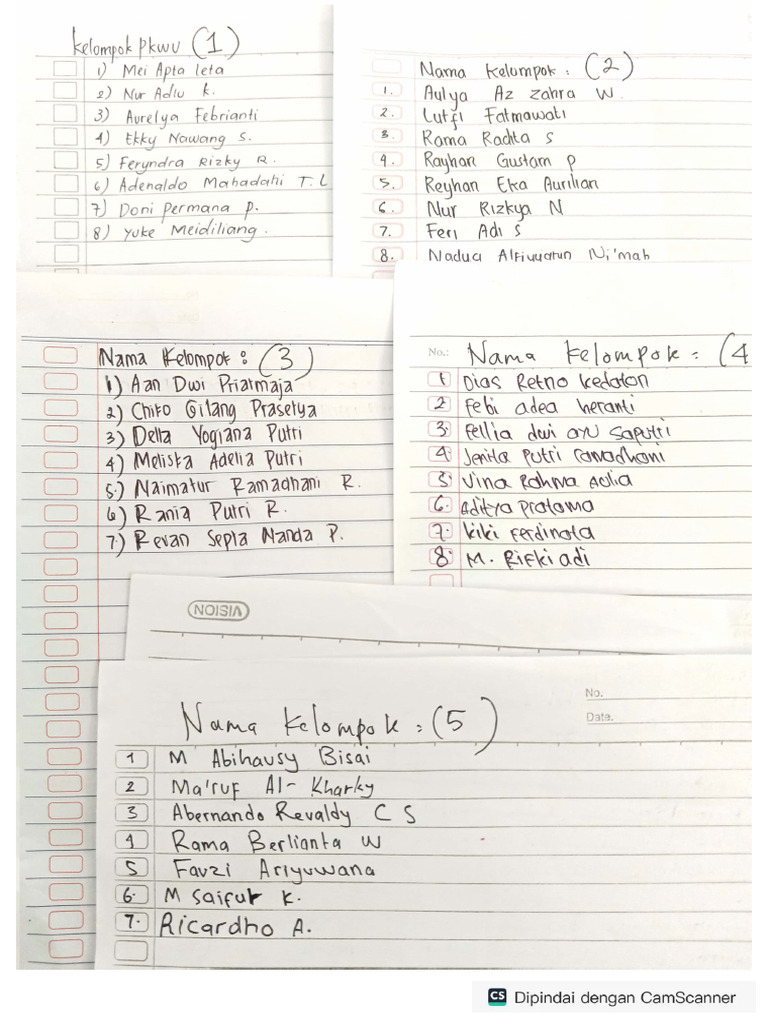 Kelompok Pkwu (1)
1) Mei Apta leta
2) Nur Adiu k.
3) Aurelya Febrianti
4) Ekky Nawang S.
5) Feryndra Rizky R.
6) Adenaldo Mahadahi T. L
7) Doni Permana P.
8) Yuke Meidiliang.
Nama Kelompok : (2)
1. Aulya Az Zahra W.
2. Lutfi Fatmawati
3. Rama Radita S
4. Rayhan Gustam P
5. Reyhan Eka Aurilian
6. Nur Rizkya N
7. Feri Adi S
8. Nadua Alfiuuatun Ni'mah
Nama Kelompok : (3)
1) Aan Dwi Priatmaja
2) Chiko Gilang Prasetya
3) Delta Yogiana Putri
4) Meliska Adelia Putri
5.) Naimatur Ramadhani R.
6) Rania Putri R.
7.) Revan Septa Nanda P.
No.: Nama Kelompok : (4
1 Dias Retno kedaton
2 Febi adea heranti
3. Fellia dwi ayu saputri
4. Jenita Putri ramadhani
5. Vina Rahma Aelia
6. Aditya pratama
7. kiki Ferdinata
8. M. Rifki adi
VISION
No.
Date.
Nama Kelompok : (5)
1 M Abihausy Bisai
2 Ma'ruf Al- Kharky
3 Abernando Revaldy C S
4 Rama Berlianta W
5 Fauzi Ariyuwana
6. M Saiful K.
7. Ricardho A.
CS Dipindai dengan CamScanner